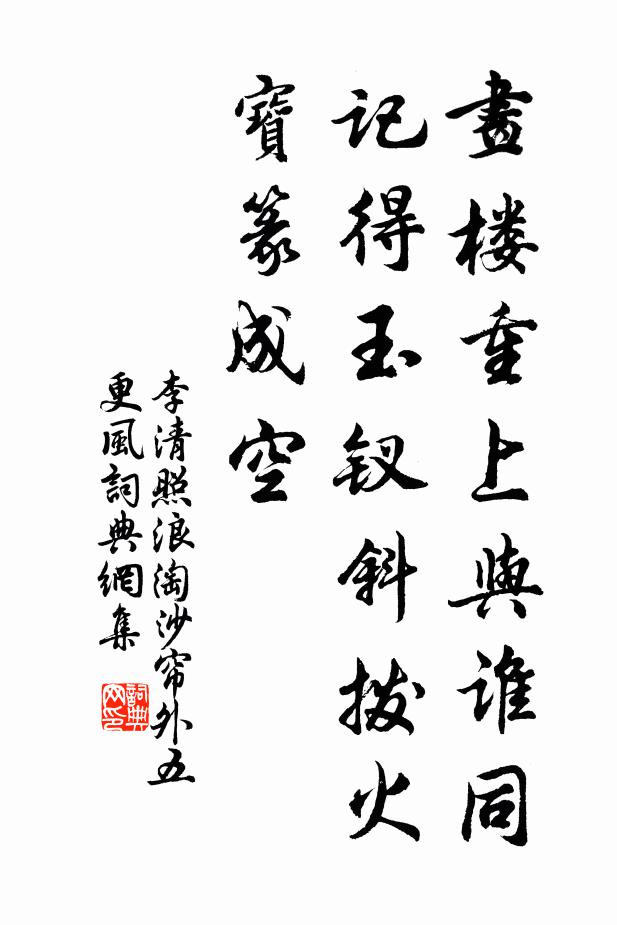 畫楼重上與誰同
記得玉釵斜撥火
寶篆成空
李清照浪淘沙帘外五
更風詞典網集
詞典
网印